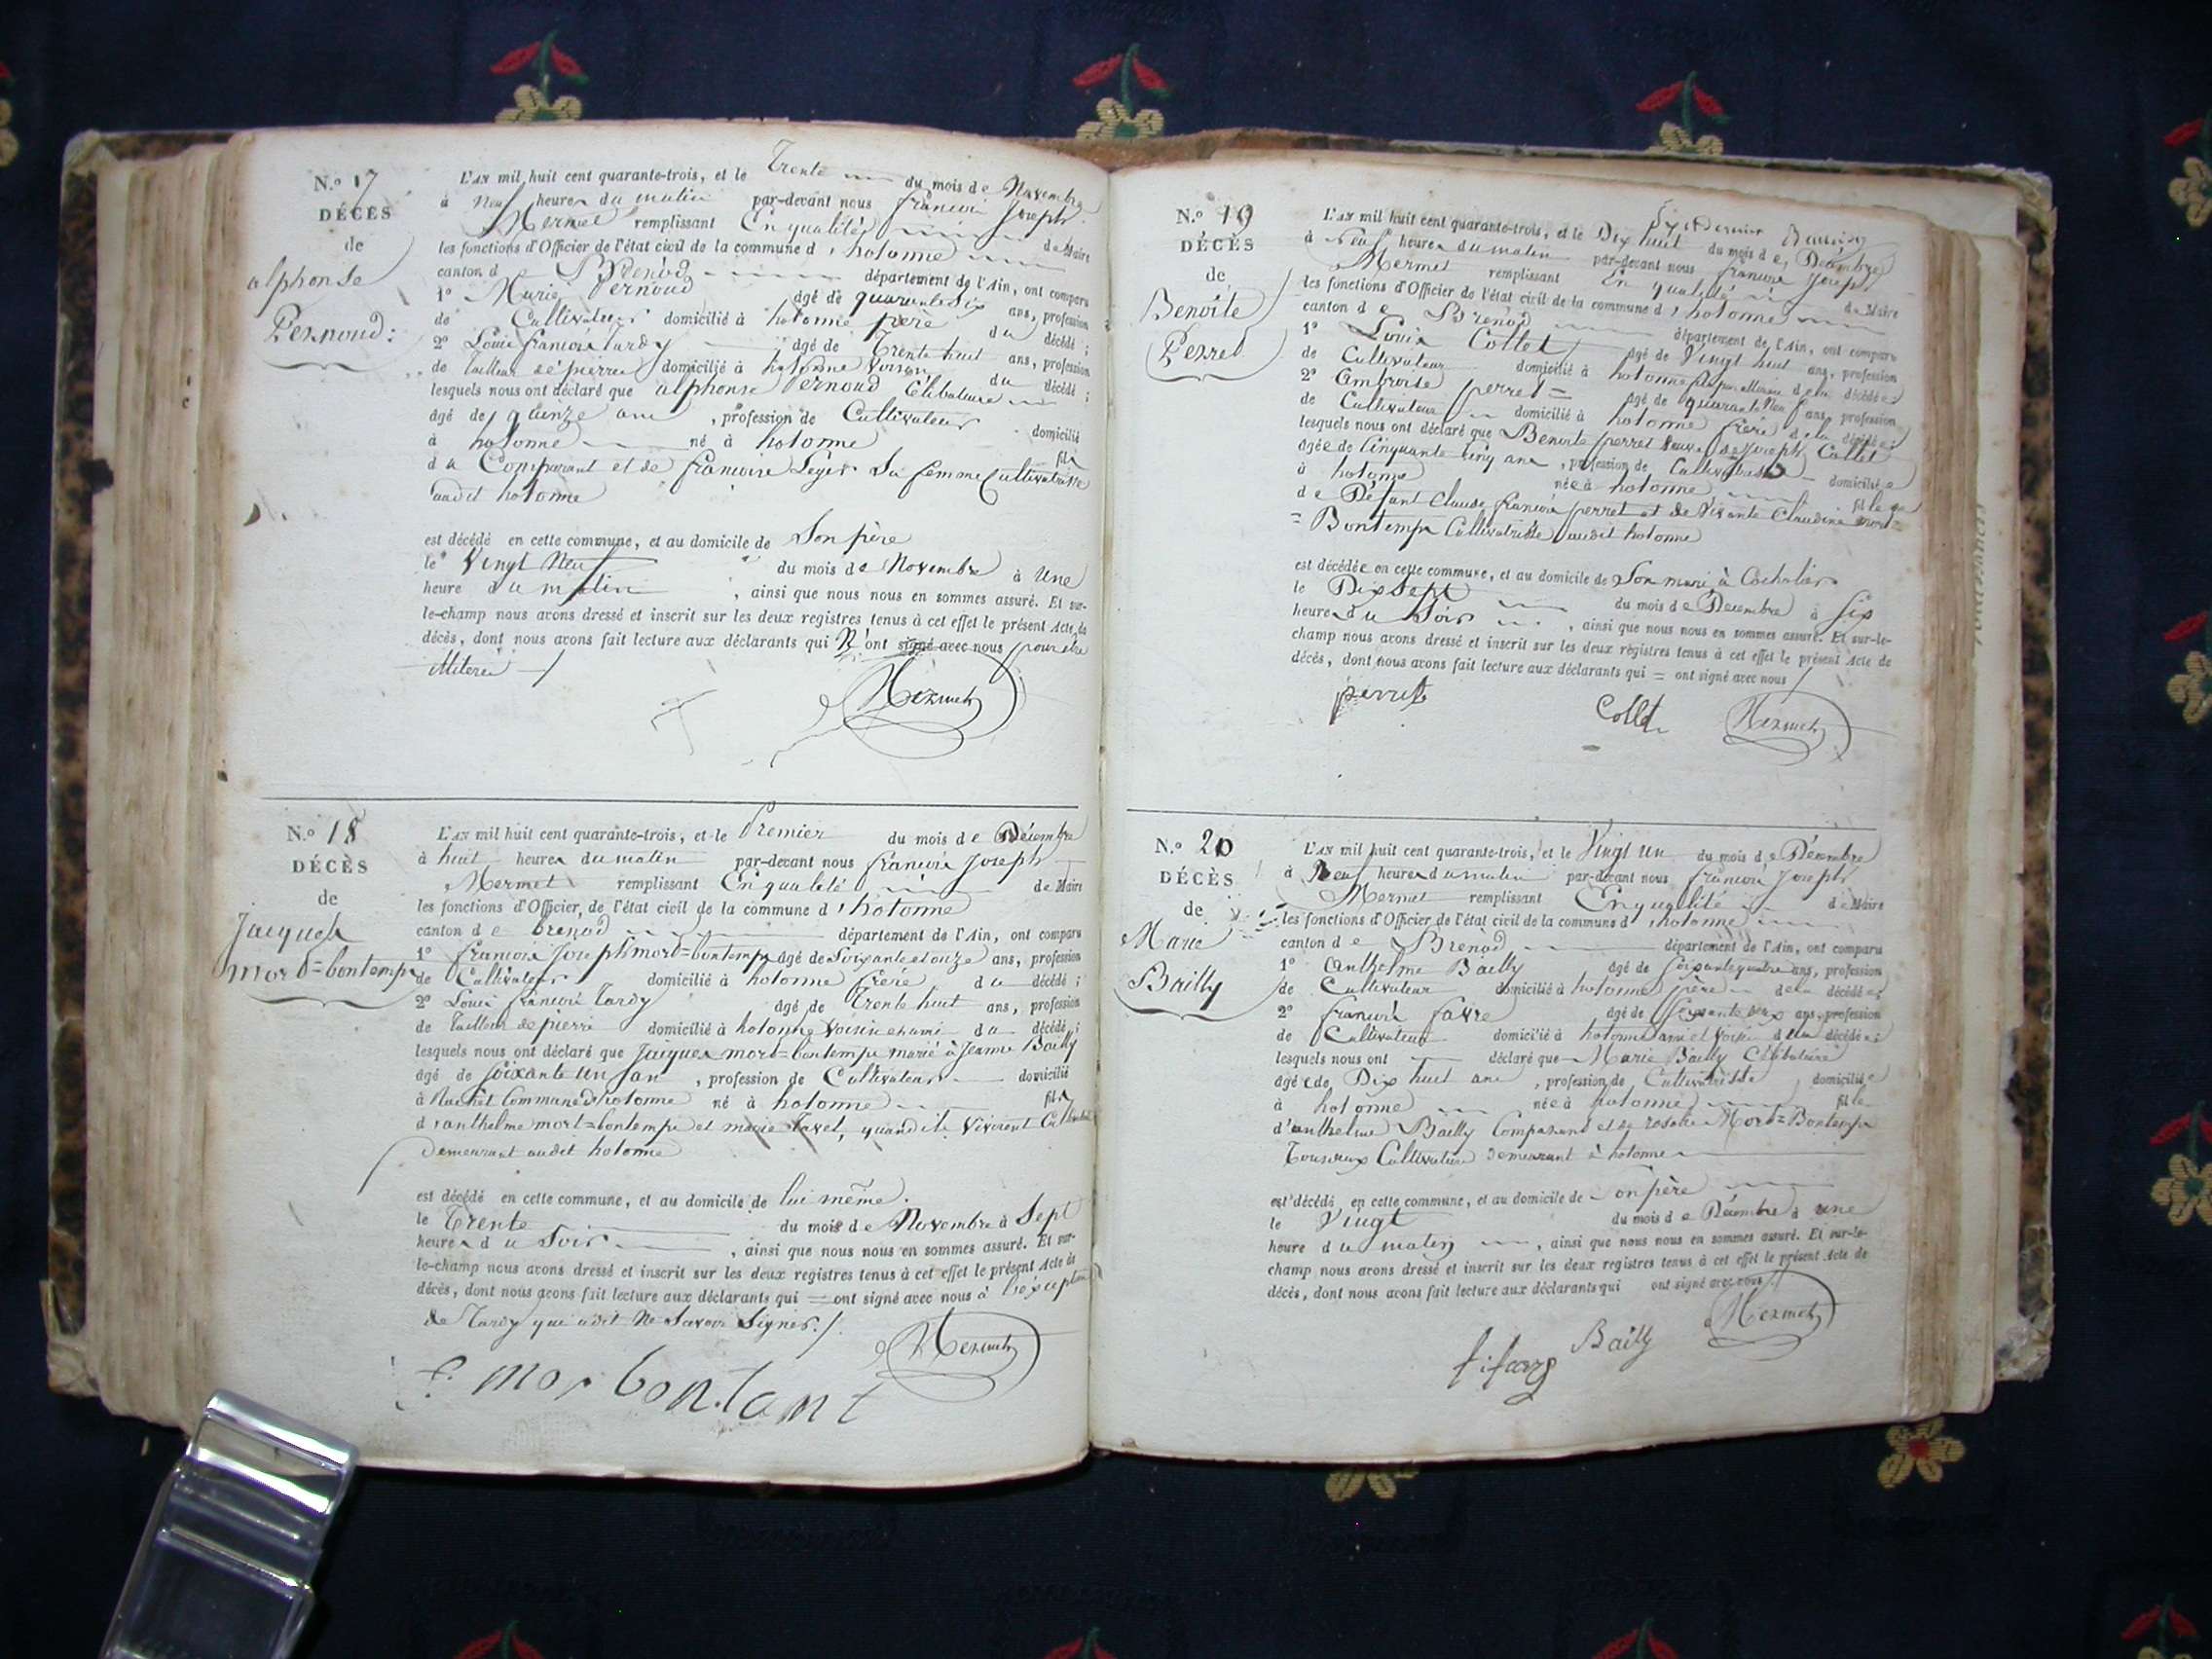 N.° 17
DÉCÈS
de
alphonse
Pernoud :
L'AN mil huit cent quarante-trois, et le Trente du mois de Novembre
à Neuf heures du matin par-devant nous françois Joseph
Mermet remplissant En qualité de Maire
les fonctions d'Officier de l'état civil de la commune d'hotonne
canton d Brénod département de l'Ain, ont comparu
1° Marie Pernoud âgé de quarante six ans, profession
de Cultivateur domicilié à hotonne père du décédé ;
2° Louis françois tardy âgé de Trente huit ans, profession
de Tailleur de pierre domicilié à hotonne Voisin du décédé ;
lesquels nous ont déclaré que alphonse Pernoud Célibataire
âgé de quinze ans, profession de Cultivateur domicilié
à hotonne né à hotonne fils
du Comparant et de françoise Leger Sa femme Cultivatrice
audit hotonne
est décédé en cette commune, et au domicile de Son père
le Vingt Neuf du mois de Novembre à Une
heure du matin, ainsi que nous nous en sommes assuré. Et sur-
le-champ nous avons dressé et inscrit sur les deux registres tenus à cet effet le présent Acte de
décès, dont nous avons fait lecture aux déclarants qui N'ont signé avec nous pour être
illiteré
Mermet
N.° 18
DÉCÈS
de
Jacques
mort=bontemps
L'AN mil huit cent quarante-trois, et le Premier du mois de Décembre
à huit heures du matin par-devant nous françois Joseph
Mermet remplissant En qualité de Maire
les fonctions d'Officier de l'état civil de la commune d'hotonne
canton de brenod département de l'Ain, ont comparu
1° françois Joseph mort=bontemps âgé de Soixante et onze ans, profession
de Cultivateur domicilié à hotonne frère du décédé ;
2° Louis françois Tardy âgé de Trente huit ans, profession
de Tailleur de pierre domicilié à hotonne Voisin et ami du décédé ;
lesquels nous ont déclaré que Jacques mort=bontemps marié à Jeanne Bailly
âgé de Soixante un an, profession de Cultivateur domicilié
à Commune d'hotonne né à hotonne fils
d'anthelme mort=bontemps et marie Tavel, quand ils Vivoient
Demeurant audit hotonne
est décédé en cette commune, et au domicile de lui même.
le Trente du mois de Novembre à Sept
heures du Soir, ainsi que nous nous en sommes assuré. Et sur-
le-champ nous avons dressé et inscrit sur les deux registres tenus à cet effet le présent Acte de
décès, dont nous avons fait lecture aux déclarants qui = ont signé avec nous à
de Tardy qui a dit Ne Savoir Signer.
Mermet
f. mor bontant
N.° 19
DÉCÈS
de
Benoîte
Perret
L'AN mil huit cent quarante-trois, et le Dix huit du mois de Décembre
à Neuf heures du matin par-devant nous françois Joseph
Mermet remplissant En qualité de Maire
les fonctions d'Officier de l'état civil de la commune d'hotonne
canton de Brénod département de l'Ain, ont comparu
1° Louis Collet âgé de Vingt huit ans, profession
de Cultivateur domicilié à hotonne de la décédée ;
2° Ambroise perret = âgé de quarante Neuf ans, profession
de Cultivateur domicilié à hotonne frère de la décédée ;
lesquels nous ont déclaré que Benoite perret de Joseph Collet
âgée de Cinquante Cinq ans, profession de Cultivatrice domiciliée
à hotonne née à hotonne fille
de Défunt Claude françois perret et de Vivante Claudine Mort
= Bontemps Cultivatrice audit hotonne
est décédée en cette commune, et au domicile de Son mari à
le Dix Sept du mois de Décembre à Six
heures du Soir, ainsi que nous nous en sommes assuré. Et sur-le-
champ nous avons dressé et inscrit sur les deux registres tenus à cet effet le présent Acte de
décès, dont nous avons fait lecture aux déclarants qui = ont signé avec nous
perret Collet Mermet
N.° 20
DÉCÈS
de
Marie
Bailly
L'AN mil huit cent quarante-trois, et le Vingt un du mois de Décembre
à Neuf heures du matin par-devant nous françois Joseph
Mermet remplissant En qualité de Maire
les fonctions d'Officier de l'état civil de la commune d'hotonne
canton de Brénod département de l'Ain, ont comparu
1° Anthelme Bailly âgé de Soixante quatre ans, profession
de Cultivateur domicilié à hotonne père de la décédée ;
2° françois favre âgé de ans, profession
de Cultivateur domicilié à hotonne ami et Voisin de la décédée ;
lesquels nous ont déclaré que Marie Bailly Célibataire
âgée de Dix huit ans, profession de Cultivatrice domiciliée
à hotonne née à hotonne fille
d'anthelme Bailly Comparant et de rosalie Mort=Bontemps
Tous deux Cultivateurs Demeurant à hotonne
est décédé en cette commune, et au domicile de Son père
le Vingt du mois de Décembre à une
heure du matin, ainsi que nous nous en sommes assuré. Et sur-le-
champ nous avons dressé et inscrit sur les deux registres tenus à cet effet le présent Acte de
décès, dont nous avons fait lecture aux déclarants qui ont signé avec nous
Bailly Mermet